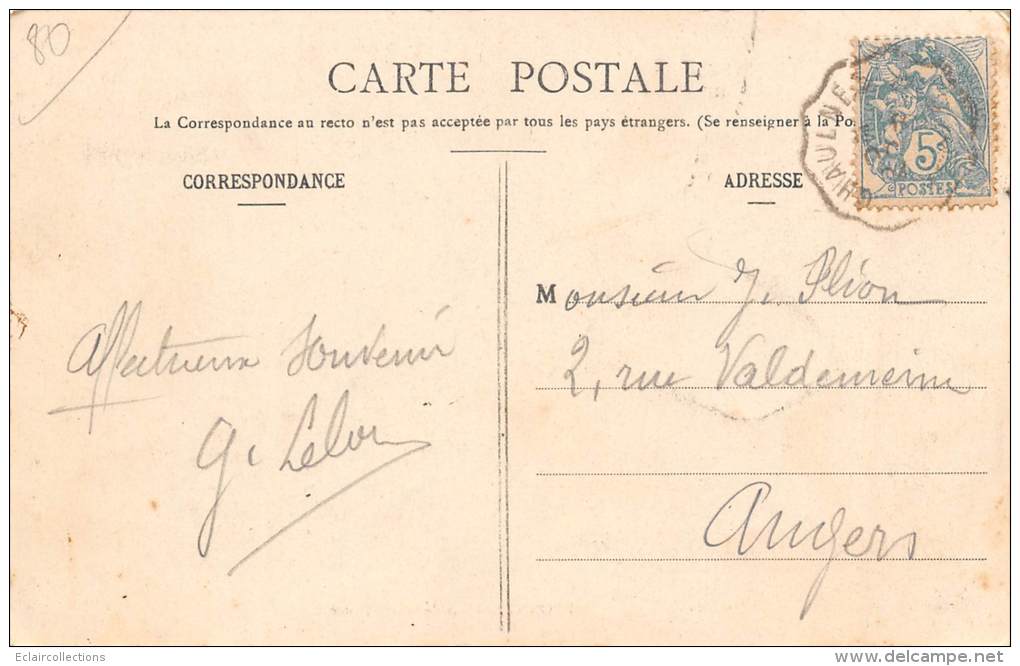 80
CARTE POSTALE
La Correspondance au recto n'est pas acceptée par tous les pays étrangers. (Se renseigner à la Po
CORRESPONDANCE
ADRESSE
CHAULNE
5
POSTES
Monsieur J. Pléon
2, rue Valdemaine
Angers
Affectueux Souvenir
G. Lelou
Eclaircollections
www.delcampe.net